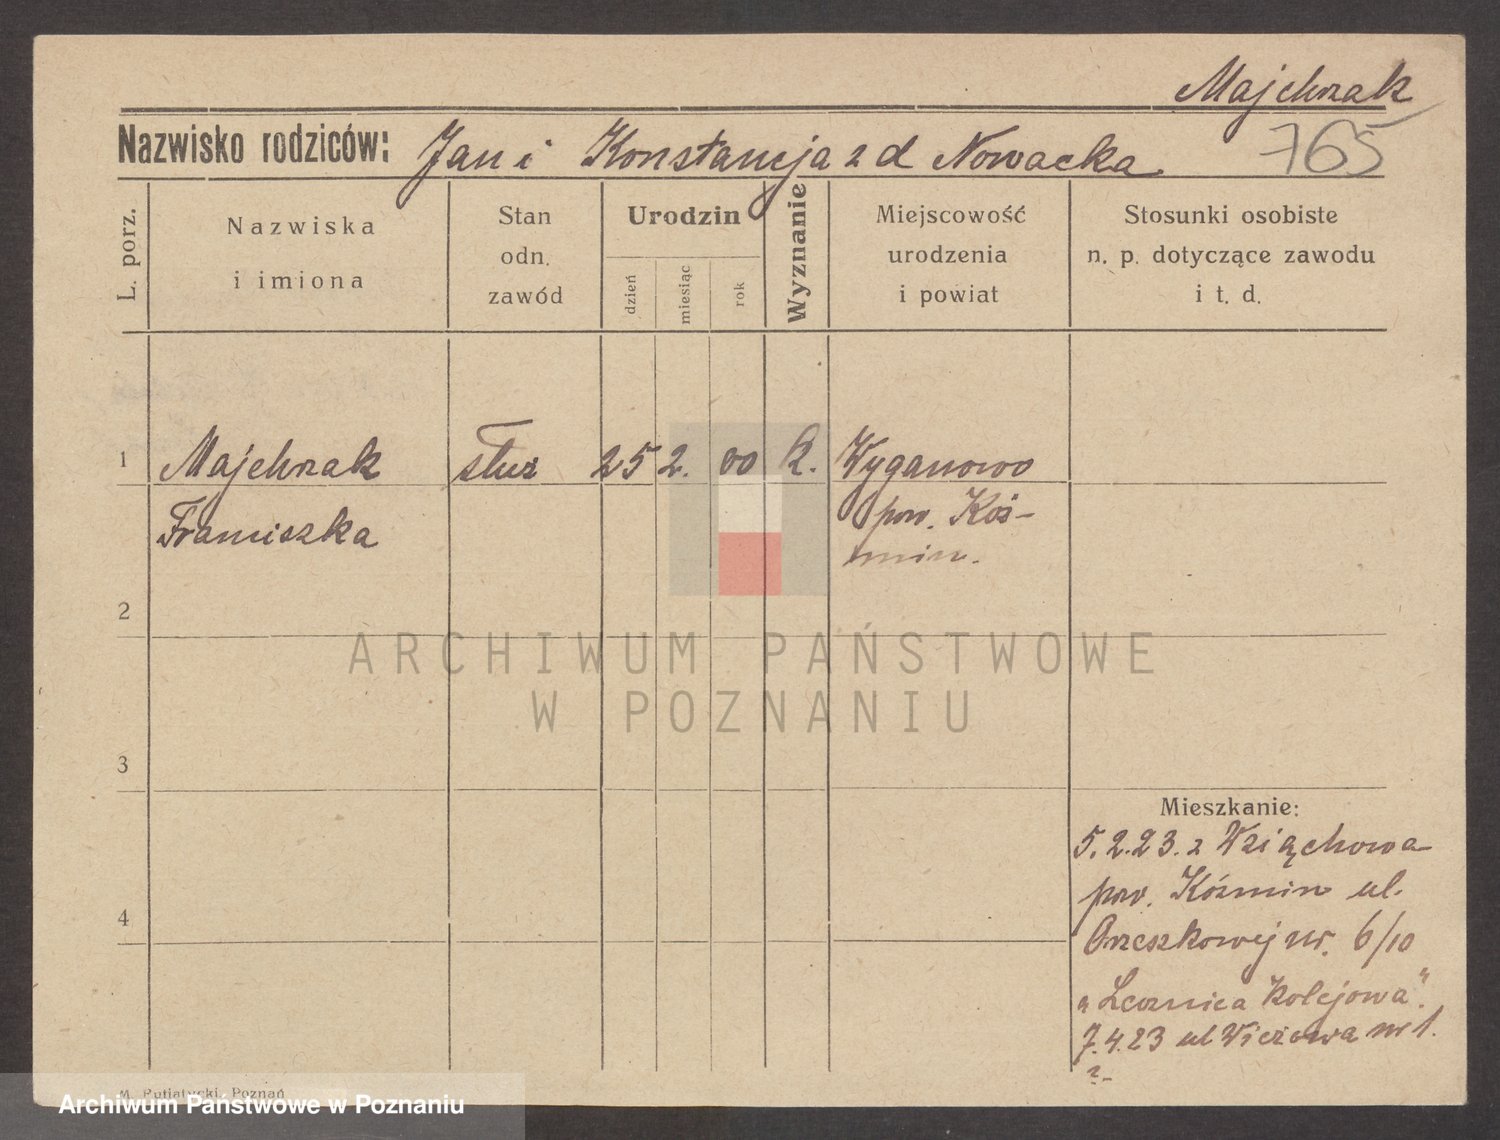 Majchrzak
765
Nazwisko rodziców: Jan i Konstancja z d Nowacka
L. porz.
Nazwiska
i imiona
Stan
odn.
zawód
Urodzin
dzień
miesiąc
rok
Wyznanie
Miejscowość
urodzenia
i powiat
Stosunki osobiste
n. p. dotyczące zawodu
i t. d.
1 Majchrzak służ 25 2. 00 k. Wyganowo
Franciszka pow. Koź-
min.
2
3
4
Mieszkanie:
5.2.23. z Wziąchowa
pow. Koźmin ul.
Orzeszkowej nr. 6/10
„Lecznica Kolejowa".
7.4.23 ul Wieżowa nr 1.
?-
M. Putiatycki, Poznań
ARCHIWUM PAŃSTWOWE
W POZNANIU
Archiwum Państwowe w Poznaniu